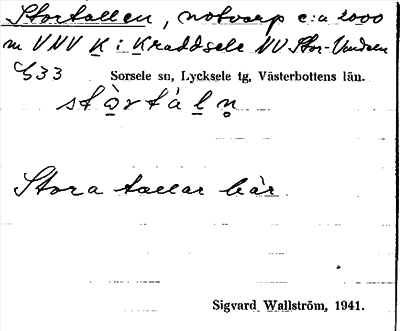 Stortallen, notvarp c:a 2000
m VNV K i Kraddsele NV Stor-Vindeln
G33 Sorsele sn, Lycksele tg, Västerbottens län.
Stora tallar här.
Sigvard Wallström, 1941.